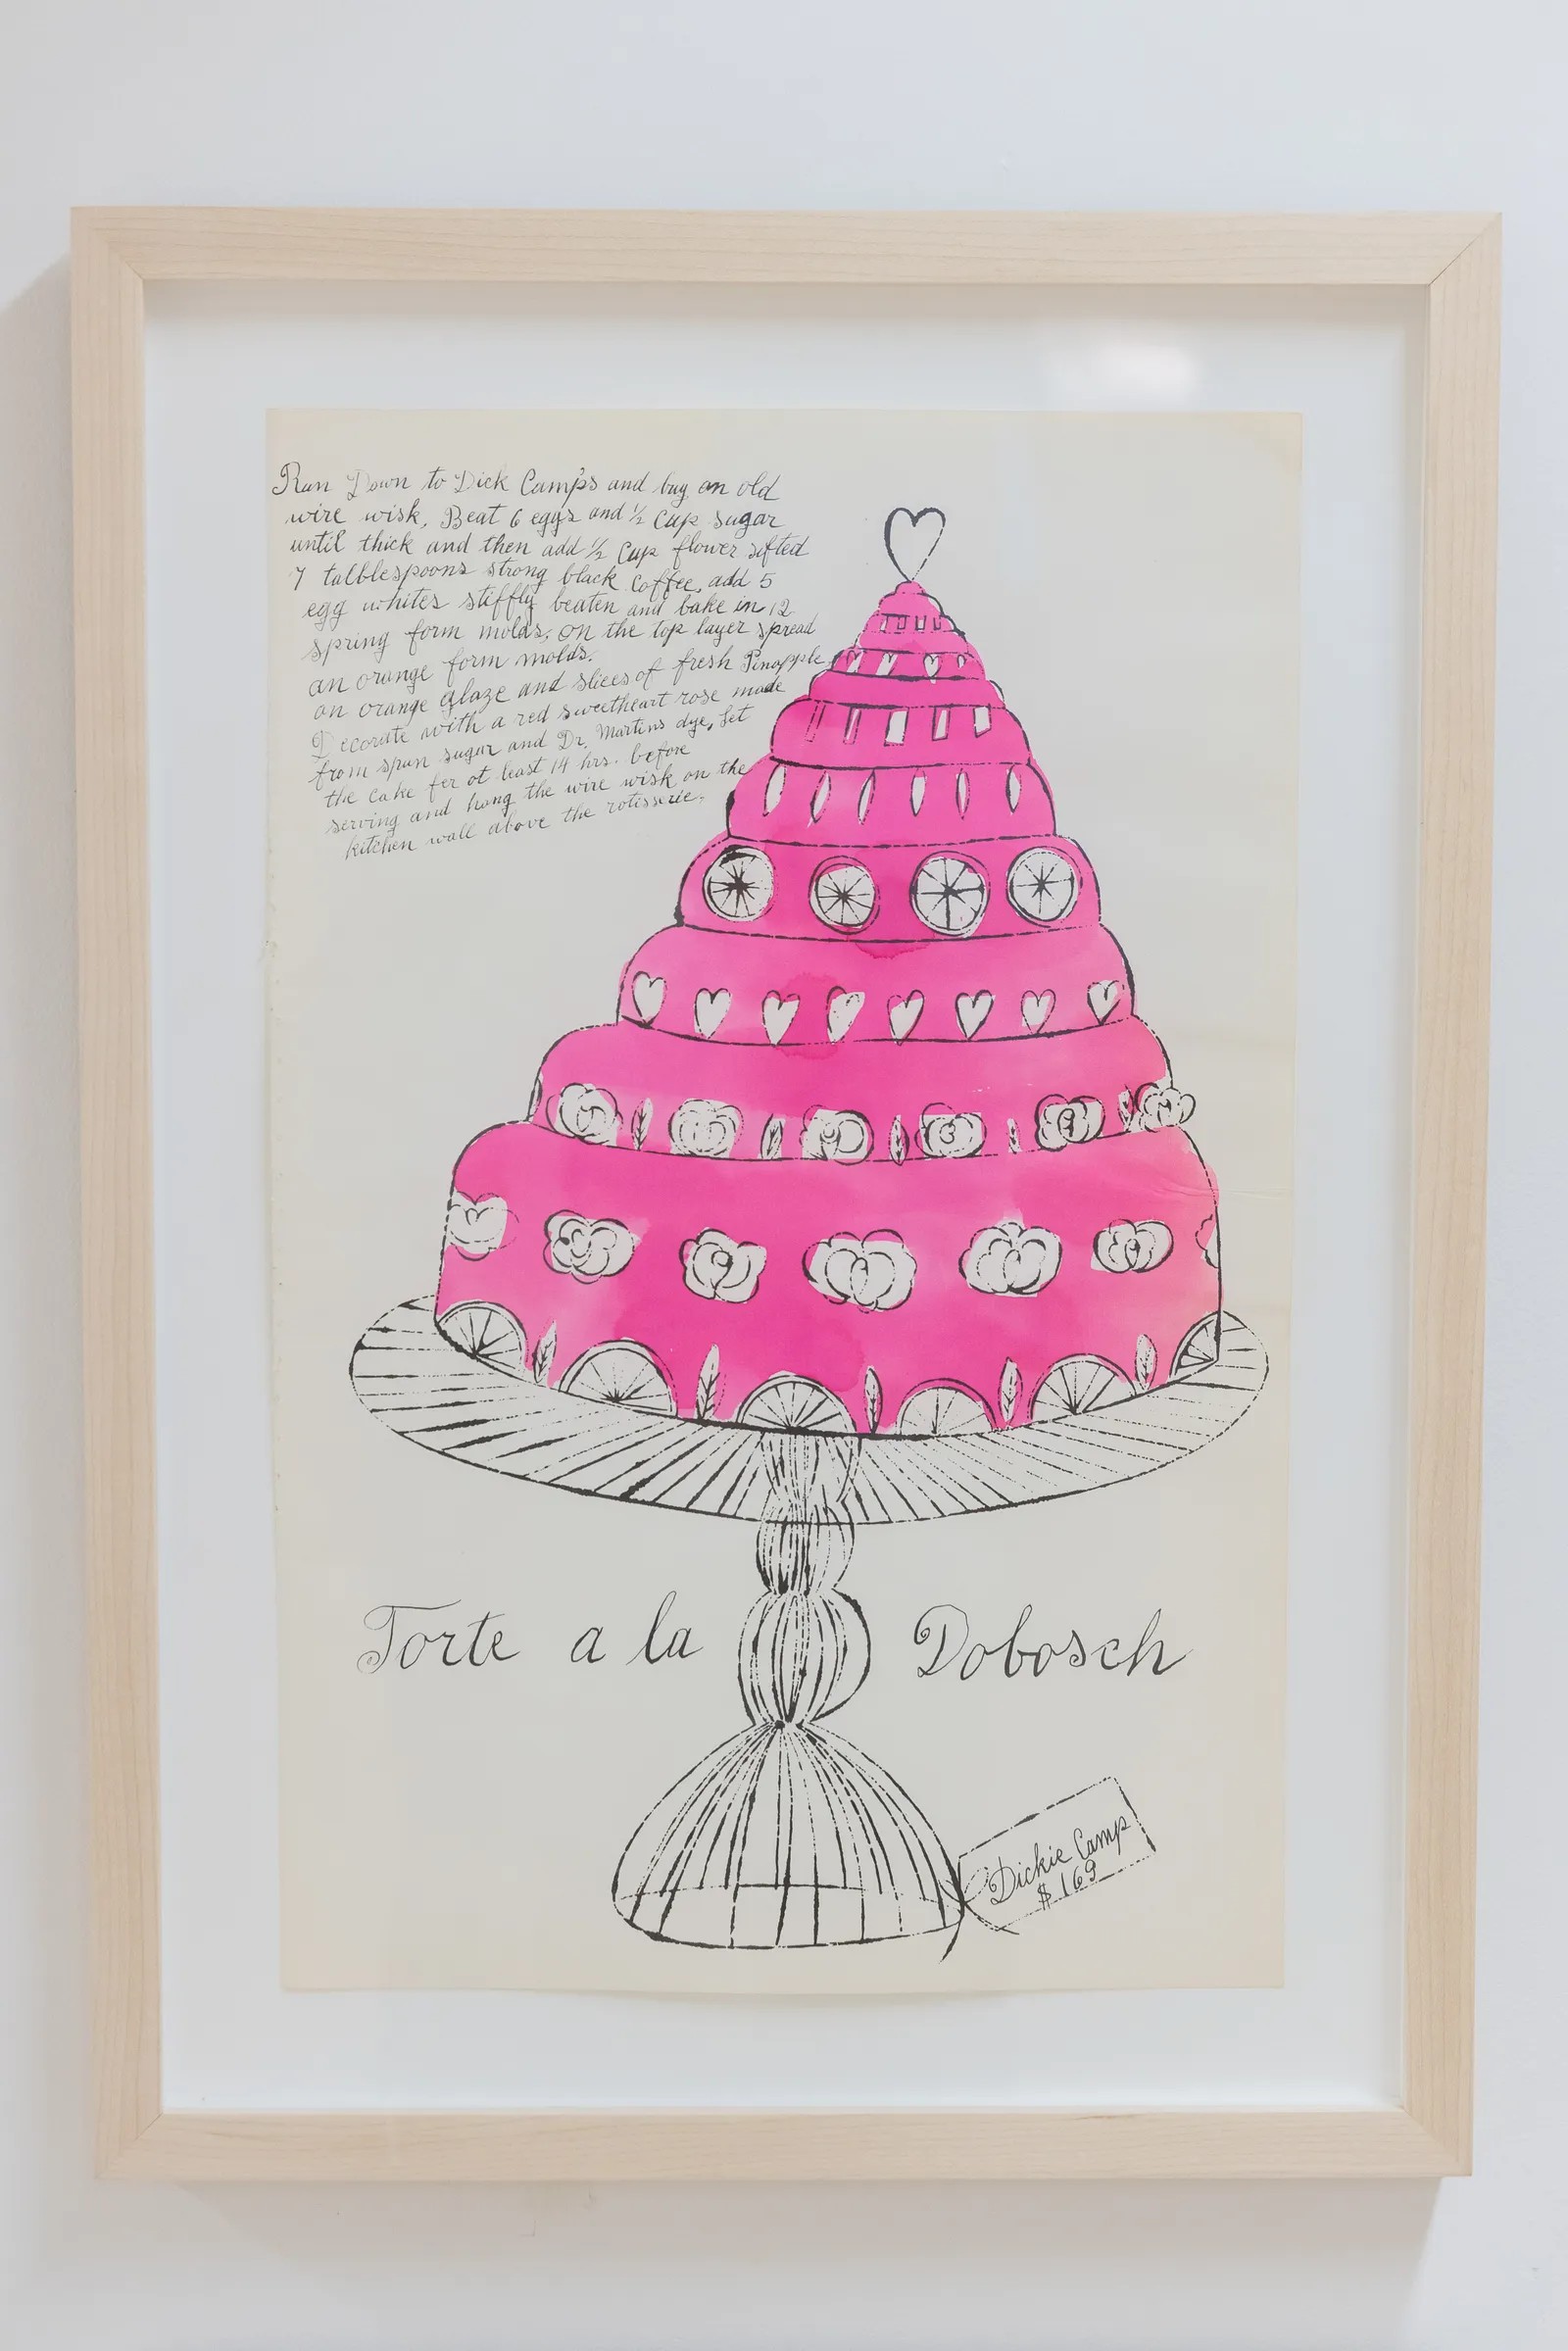 Run Down to Dick Camp's and buy an old
wire wisk, Beat 6 eggs and ½ Cup sugar
until thick and then add ½ Cup flower sifted
7 talblespoons strong black Coffee, add 5
egg whites stiffly beaten and bake in 12
spring form molds, on the top layer spread
an orange form molds.
on orange glaze and slices of fresh Pinapple,
Decorate with a red sweetheart rose made
from spun sugar and Dr. Martins dye, Set
the cake fer at least 14 hrs. before
serving and hang the wire wisk on the
kitchen wall above the rotisserie.
Torte a la Dobosch
Dickie Camp
$169